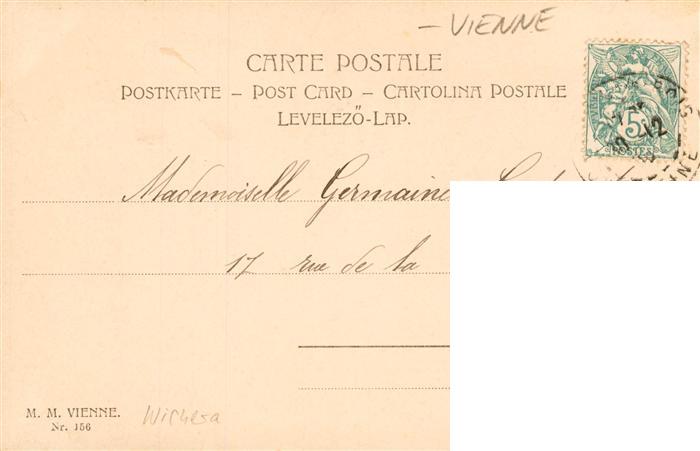 – VIENNE
CARTE POSTALE
POSTKARTE – POST CARD – CARTOLINA POSTALE
LEVELEZŐ-LAP.
5
POSTES
12
Mademoiselle Germaine
17 rue de la
M. M. VIENNE.
Nr. 156
Wichera